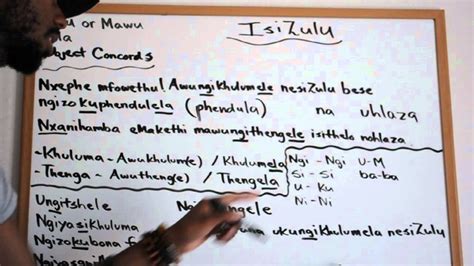 u or Mawu
IsiZulu
la
bject Concords
Nxephe mfowethu! Awungikhulumele nesiZulu bese
ngizokuphendulela (phendula) na uhlaza
Nxanihamba eMakethi mawungithengele isithelo nohlaza
-Khuluma - Awukhulum(e) / Khulumela
-Thenga - Awutheng(e) / Thengela
Ngi - Ngi U-M
Si - Si ba-ba
U - Ku
Ni - Ni
Ungitshele
Ngiyasikhuluma
ukungikhulumela nesiZulu
Ngizokubona